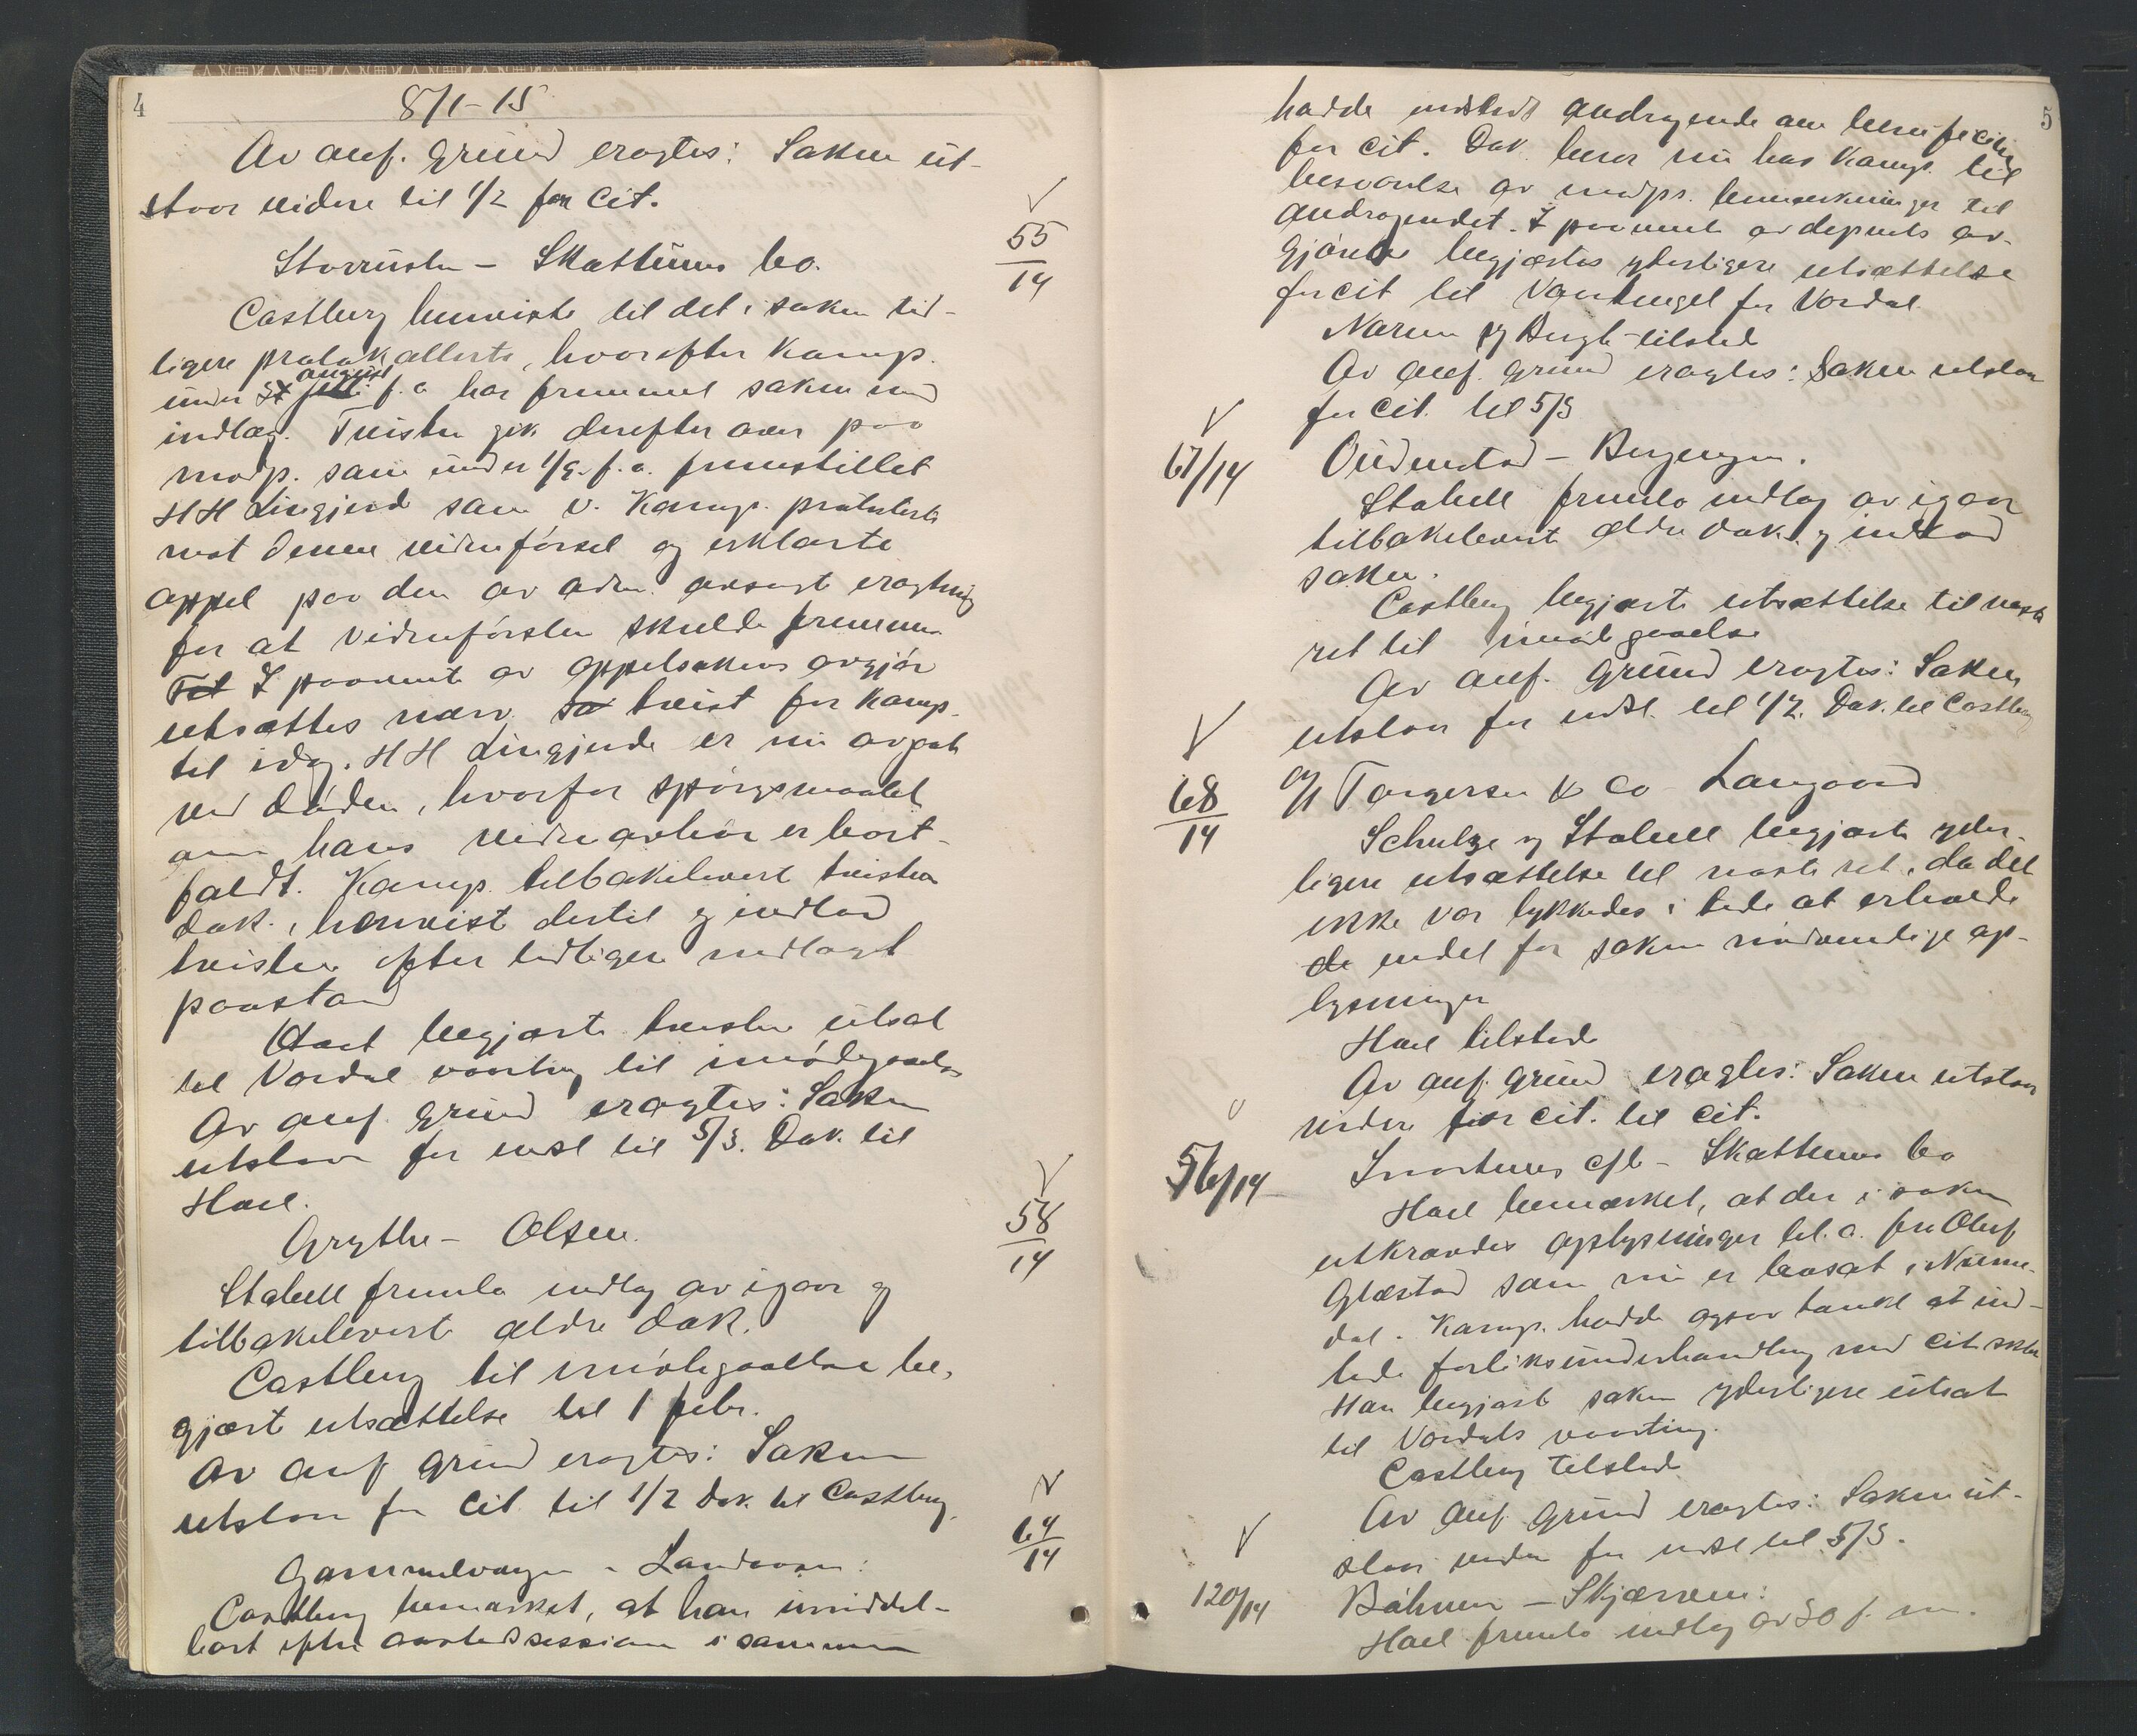 4
8/1-15
Av anf. grund eragtes: Saken ut-
staar videre til 1/2 for Cit.
Storrusten - Skattums bo.
55/14
Castberg henviste til det i saken tid-
ligere protokollerte, hvorefter Kamp.
under august f. a har fremmet saken med
indlæg. Tvisten gik derefter over paa
modp. som under 1/9. f. a. fremstillet
HH som v. Kamp. protesterte
mot denne vidneførsel og erklærte
appel paa den av adm. avsagte eragtning
for at vidneførslen skulde fremmes
I paavente av appelsakens avgjør
utsattes nærv. tvist for Kamp.
til idag. HH er nu avgaat
ved døden, hvorfor spørgsmaalet
om hans vidneavhør er bort-
faldt. Kamp. tilbakeleverte tvistens
dok., henviste dertil og indlod
tvisten efter tidligere nedlagt
paastand
begjærte tvisten utsat
til Vardal vaarting til imødegaaelse
Av anf. grund eragtes: Saken
utstaar for indst til 5/3. Dok. til
Hael.
Grythe - Olsen.
58/14
Stabell fremla indlæg av igaar og
tilbakeleverte ældre dok.
Castberg til imøtegaaelse be-
gjærte utsættelse til 1 febr.
Av anf grund eragtes: Saken
utstaar for Cit. til 1/2 Dok. til Castberg.
64/14
Castberg bemærket, at han umiddel-
bart efter aastedssessionen i sammen
5
hadde indsendt andragende om beneficium
for cit. Dok. beror nu hos Kamp. til
besvarelse av modps. bemærkninger til
andragendet. I paavente av depmts av-
gjørelse begjærtes yderligere utsættelse
for cit til Vaartinget for Vardal.
Av anf. grund eragtes: Saken utstaar
for Cit. til 5/3
67/14
Stabell fremla indlæg av igaar
tilbakeleverte ældre dok. og indlod
saken.
Castberg begjærte utsættelse til næste
ret til imødegaaelse
Av anf. grund eragtes: Saken
utstaar for indst. til 1/2. Dok. til Castberg
68/14
A/S Torgersen & Co - Langaard
Schulze og Stabell begjærte yder-
ligere utsættelse til næste ret, da det
ikke var lykkedes i tide at erholde
de endel for saken nødvendige op-
lysninger
Hael tilstede
Av anf. grund eragtes: Saken utstaar
videre for cit. til Cit.
56/14
eftl - Skattums bo
Hael bemærket, at der i saken
utkrævdes oplysninger bl. a. fra Oluf
Glæstad som nu er bosat i Numme-
dal. Kamp. hadde ogsaa tænkt at ind-
lede forliksunderhandling med citskten
Han begjærte saken yderligere utsat
til Vardals vaarting.
Castberg tilstede
Av anf grund eragtes: Saken ut-
staar videre for indst til 5/3.
120/14
Bøhmer - Skjærven:
Hael fremla indlæg av 30 f. m.